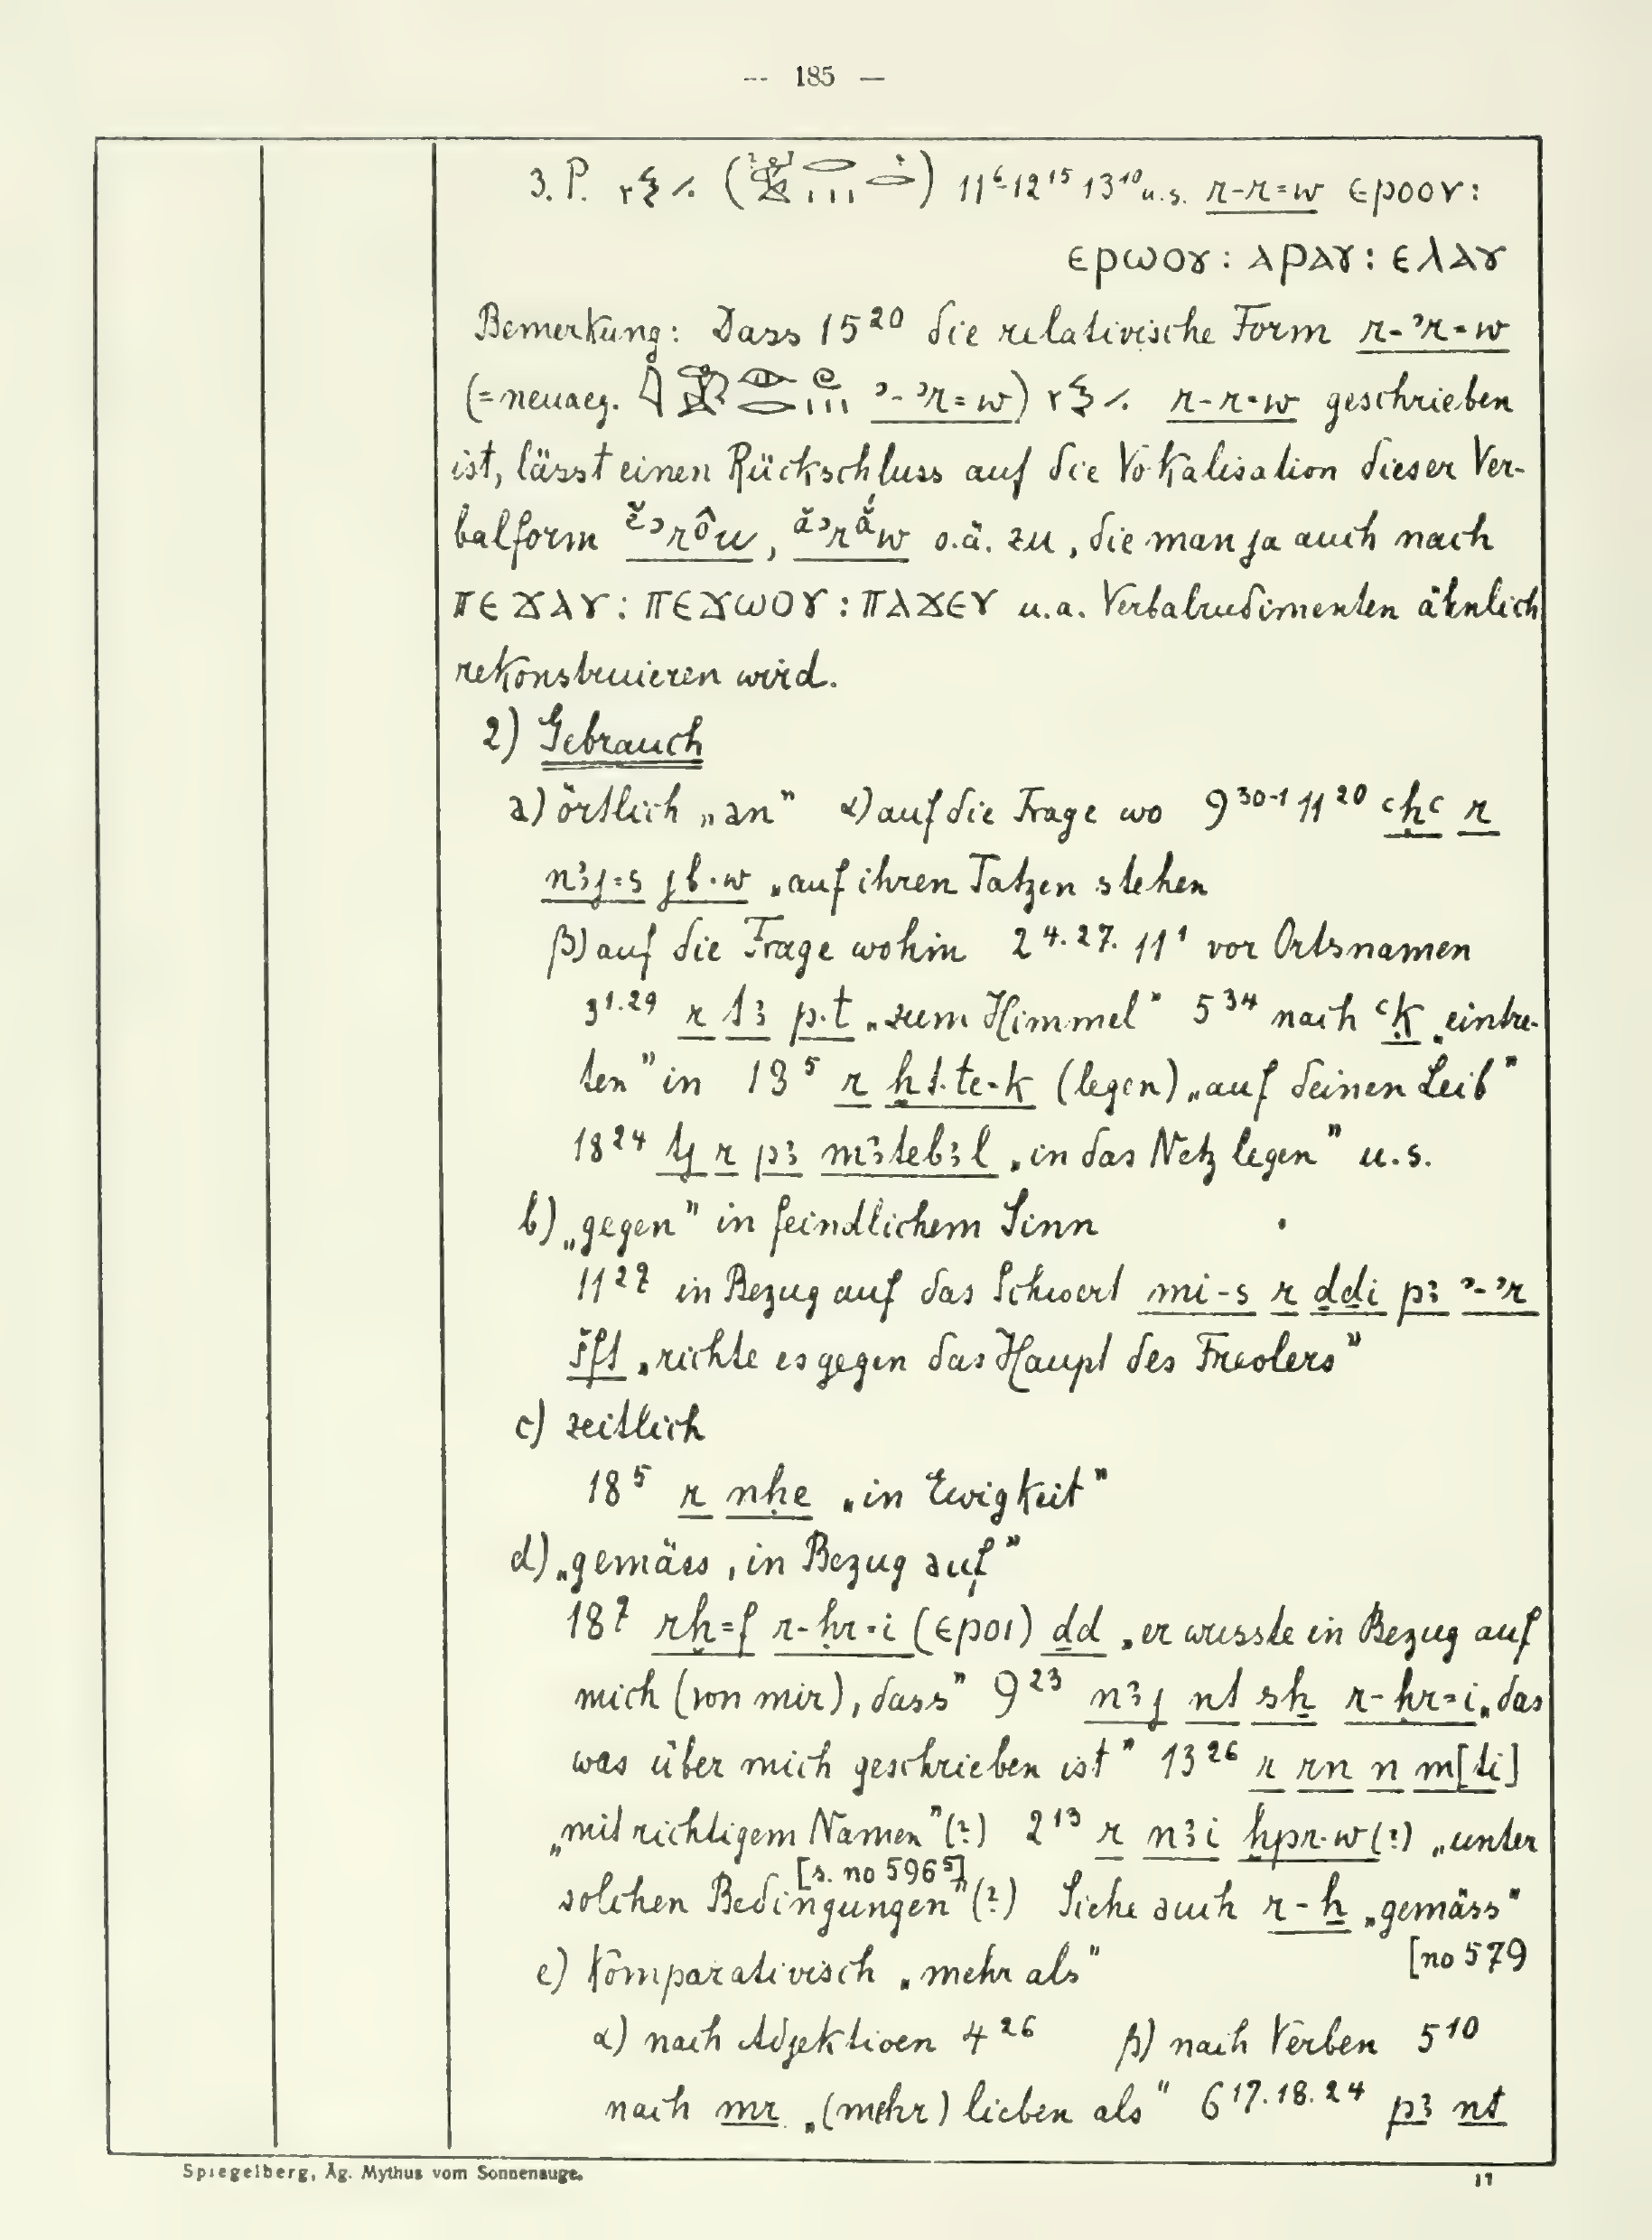 — 185 —
3. P. ( ) 11⁶ 12¹⁵ 13¹⁰ u.s. r-r=w ⲉⲣⲟⲟⲩ:
ⲉⲣⲱⲟⲩ: ⲁⲣⲁⲩ: ⲉⲗⲁⲩ
Bemerkung: Dass 15²⁰ die relativische Form r-ʾr=w
(=neuaeg. ʾ-ʾr=w) r-r=w geschrieben
ist, lässt einen Rückschluss auf die Vokalisation dieser Ver-
balform ĕʾrôu, ăʾrắw o.ä. zu, die man ja auch nach
ⲡⲉϫⲁⲩ: ⲡⲉϫⲱⲟⲩ: ⲡⲁϫⲉⲩ u.a. Verbalrudimenten ähnlich
rekonstruieren wird.
2) Gebrauch
a) örtlich „an” α) auf die Frage wo 9³⁰⁻¹ 11²⁰ ꜥḥꜥ r
nꜣj=s jb·w „auf ihren Tatzen stehen
β) auf die Frage wohin 2⁴·²⁷· 11¹ vor Ortsnamen
3¹·²⁹ r tꜣ p·t „zum Himmel” 5³⁴ nach ꜥḳ „eintre-
ten” in 13⁵ r ẖt·te-k (legen) „auf deinen Leib”
18²⁴ tj r pꜣ mꜣtebꜣl „in das Netz legen” u.s.
b) „gegen” in feindlichem Sinn
11²⁷ in Bezug auf das Schwert mi-s r ḏḏi pꜣ ʾ-ʾr
šft „richte es gegen das Haupt des Frevlers”
c) zeitlich
18⁵ r nḥe „in Ewigkeit”
d) „gemäss, in Bezug auf”
18⁷ rḫ=f r-ḥr·i (ⲉⲣⲟⲓ) ḏd „er wusste in Bezug auf
mich (von mir), dass” 9²³ nꜣj nt sẖ r-ḥr=i „das
was über mich geschrieben ist” 13²⁶ r rn n m[ti]
„mit richtigem Namen”(?) 2¹³ r nꜣi ḫpr·w(?) „unter
[s. no 596⁵]
solchen Bedingungen”(?) Siehe auch r-ẖ „gemäss”
[no 579
e) Komparativisch „mehr als”
α) nach Adjektiven 4²⁶ β) nach Verben 5¹⁰
nach mr „(mehr) lieben als” 6¹⁷·¹⁸·²⁴ pꜣ nt
Spiegelberg, Äg. Mythus vom Sonnenauge.
17